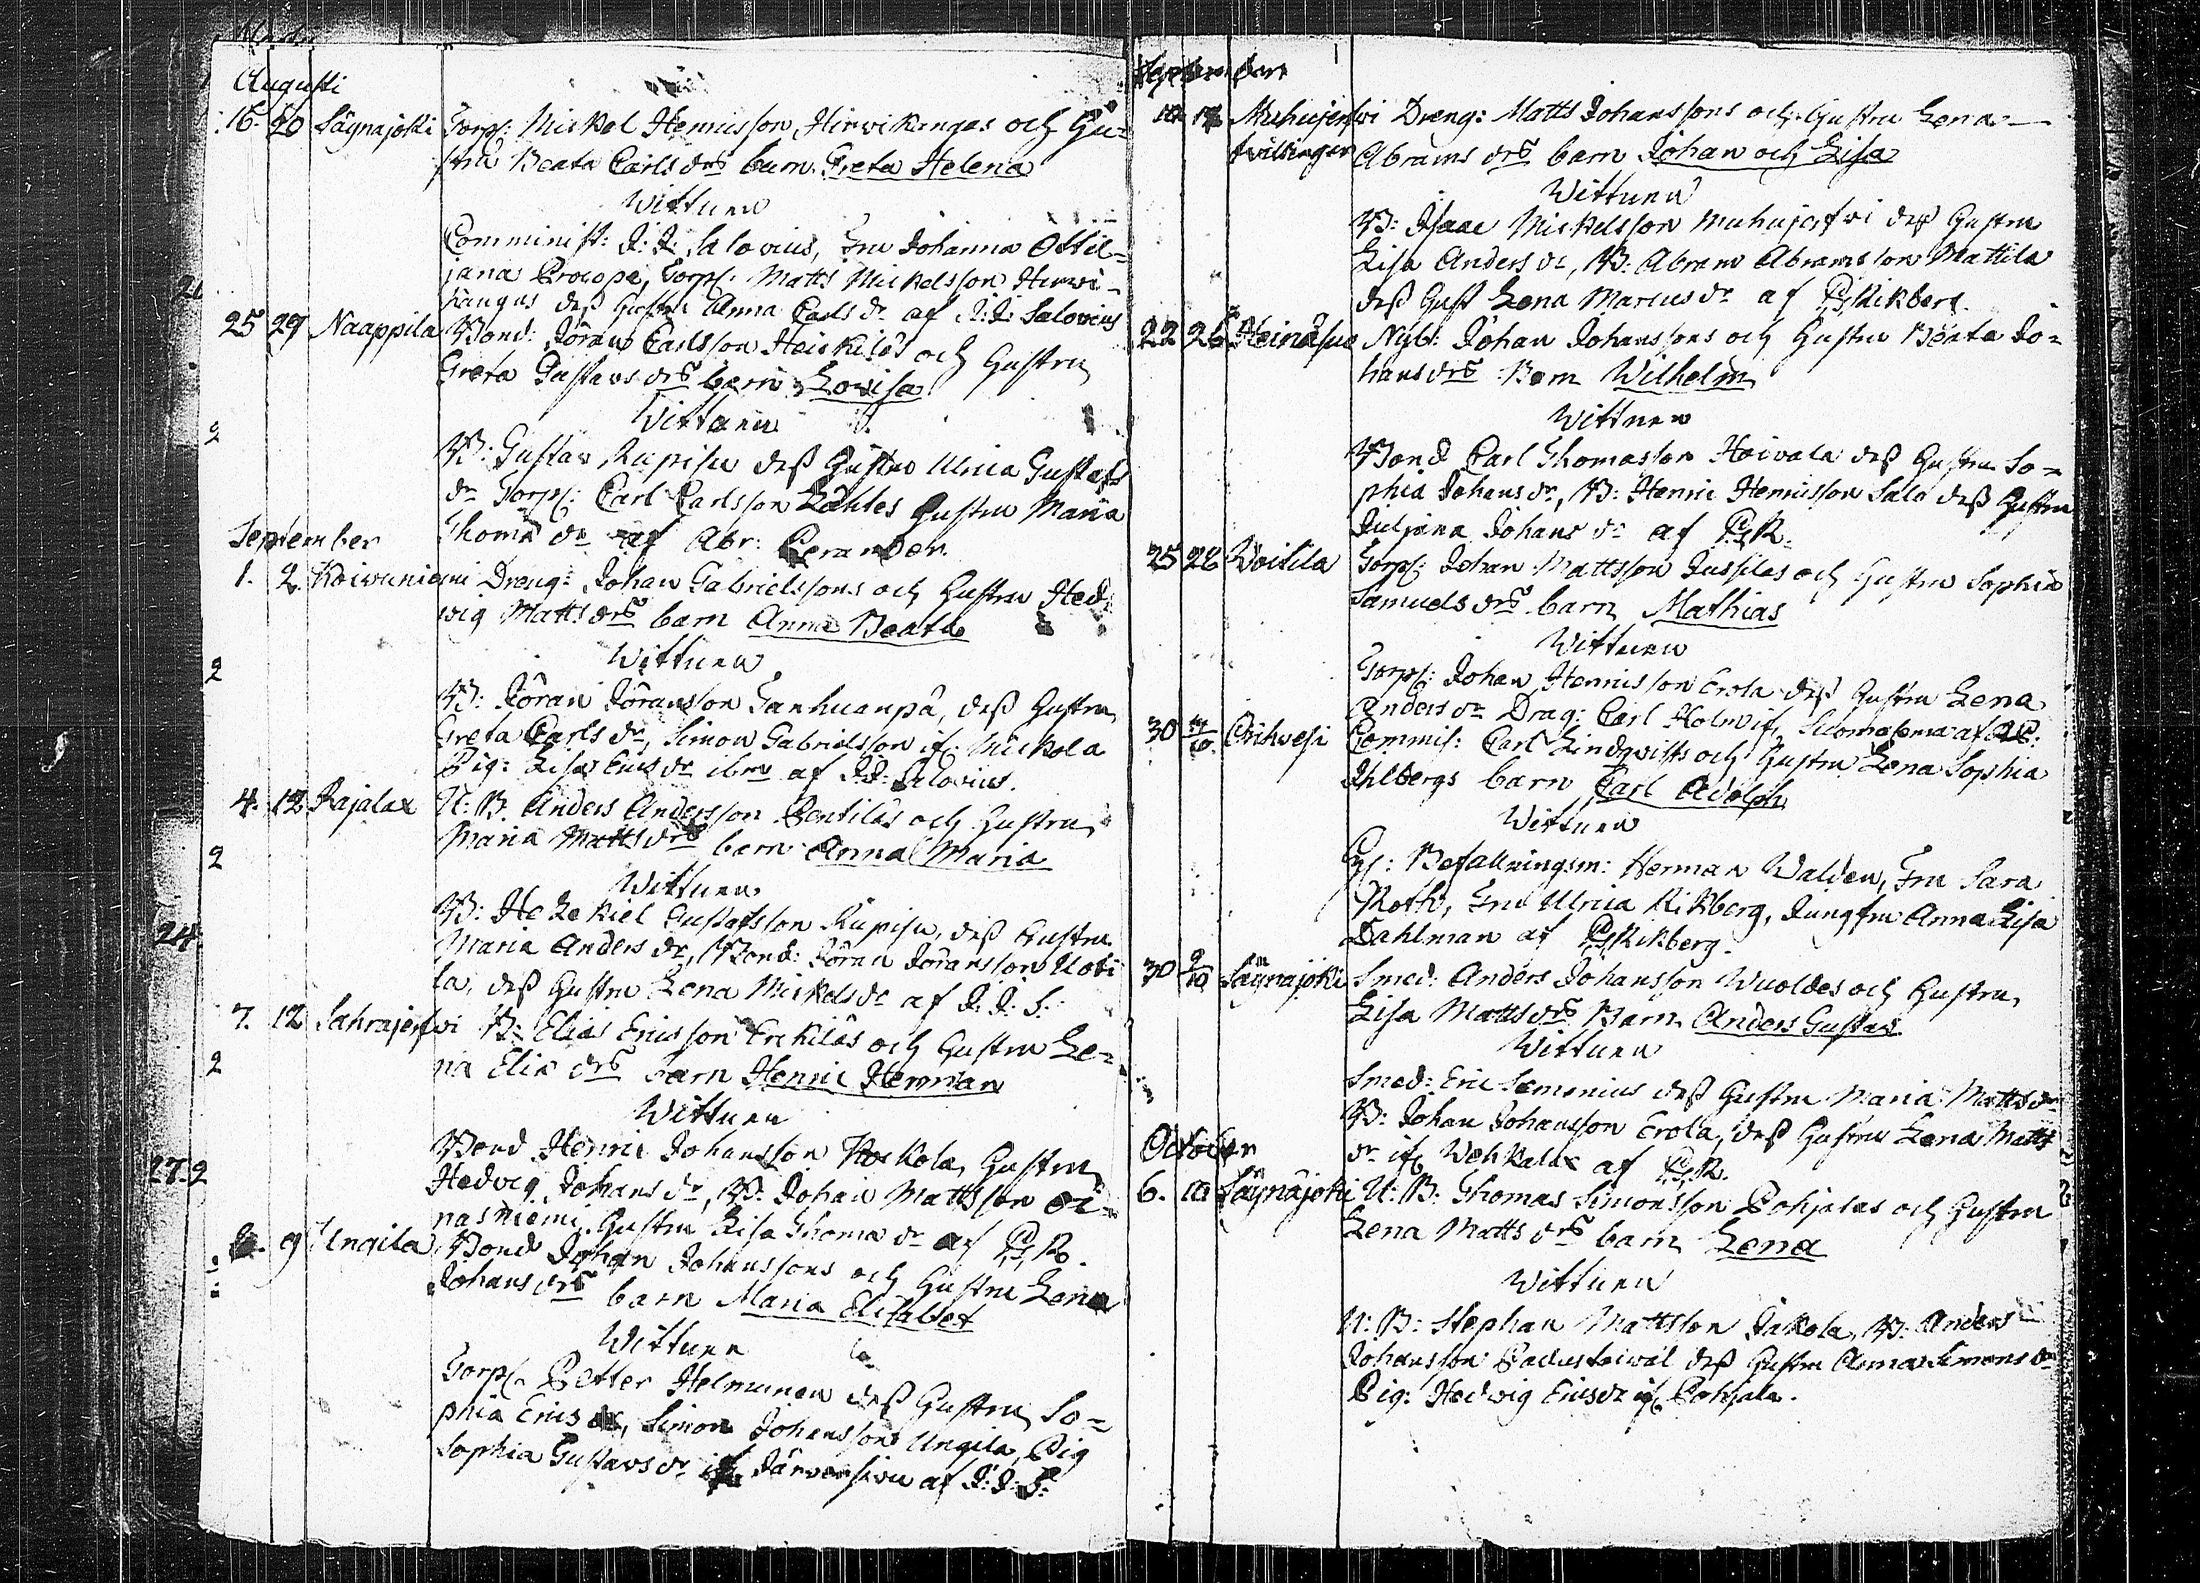 Augusti
16. 20 Säynajoki Torp: Mickel Henricsson Hirwikangas och Hu-
stru Beata Carls drs barn Greta Helena
Wittnen
Comminist: J: J: Salovius, Fru Johanna Ottil-
jana Procope, Torp: Matts Mickelsson Hirwi-
kangas dess Hustru Anna Carls dr af J: J: Salovius
25 29 Naappila Bond: Jöran Carlsson Heickiläs och Hustru
Greta Gustavs drs barn Lovisa
Wittnen
B: Gustav Rupisu dess Hustru Ulrica Gustafs
dr Torp: Carl Carlsson Lahtes Hustru Maria
Thoma dr af Abr: Perander
September
1. 2. Koiwuniemi Dreng: Johan Gabrielssons och Hustru Hed-
wig Matts drs barn Anna Beata
Wittnen
B: Jöran Jöransson Tanhuanpä, dess Hustru
Greta Carls dr, Simon Gabrielsson if: Mickola
Pig: Lisa Erics dr ibm af J: J: Salovius.
4. 12 Rajalax N: B. Anders Andersson Pentiläs och Hustru
Maria Matts drs barn Anna Maria
Wittnen
B: Hezekiel Gustafsson Rupisu, dess Hustru
Maria Anders dr, Bond: Jöran Jöransson Uoti
la, dess Hustru Lena Mickels dr af J: J: S:
7. 12 Sahrajerfwi B: Elias Ericsson Erckiläs och Hustru Le-
na Elia drs barn Henric Herman
Wittnen
Bond Henric Johansson Kockola, Hustru
Hedvig Johans dr, B: Johan Mattsson Oi-
nasniemi, Hustru Lisa Thoma dr af P: R.
9 Ungila Bond Johan Johanssons och Hustru Lena
Johans drs barn Maria Elisabet
Wittnen
Torp: Petter Helminen dess Hustru So-
phia Erics dr, Simon Johansson Ungila, Pig
Sophia Gustavs dr if: Järwensivu af J: J: S:
September
10 17 Muhujerfwi Dreng: Matts Johanssons och Hustru Lena
twillingar Abrams drs barn Johan och Lisa
Wittnen
B: Isaac Mickelsson Muhujerfwi dess Hustru
Lisa Anders dr, B: Abram Abramsson Mattila
dess Hust Lena Marcus dr af P: Rikberg.
22 26 Heinäsuo Nyb: Johan Johanssons och Hustru Beata Jo-
hans drs Barn Wilhelm
Wittnen
Bond Carl Thomasson Hoivala dess Hustru So-
phia Johans dr, B: Henric Henricsson Salo dess Hustru
Juljana Johans dr af P: R.
25 28 Woitila Torp: Johan Mattsson Jussilas och Hustru Sophia
Samuels drs barn Mathias
Wittnen
Torp: Johan Henricsson Erola dess Hustru Lena
Anders dr Drag: Carl Holm if:
30 Orihwesi Commiss: Carl Lindqvists och Hustru Lena Sophia
Ihlbergs barn Carl Adolph
Wittnen
Befallningsm: Herman Walden, Fru Sara
Roth, Fru Ulrica Rikberg, Jungfru Anna Lisa
Dahlman af P: Rikberg.
30 9/10 Säynajoki Smed: Anders Johansson Wuoldes och Hustru
Lisa Matts drs Barn Anders Gustav
Wittnen
Smed: Eric Semenius dess Hustru Maria Matts dr
B: Johan Johansson Erola, dess Hustru Lena Matts
dr if: Wehkalax af P: R.
October
6. 10 Säynäjoki N: B: Thomas Simonsson Pohjalas och Hustru
Lena Matts drs barn Lena
Wittnen
N: B: Stephan Mattsson Jakola, B: Anders
Johansson dess Hustru Anna Simons dr
Pig: Hedwig Erics dr if: Pohjala.